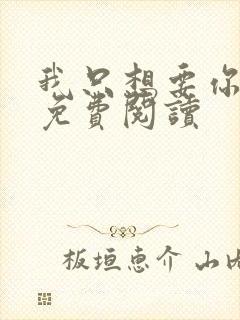 我只想要你
免費閱讀
板垣恵介 山内